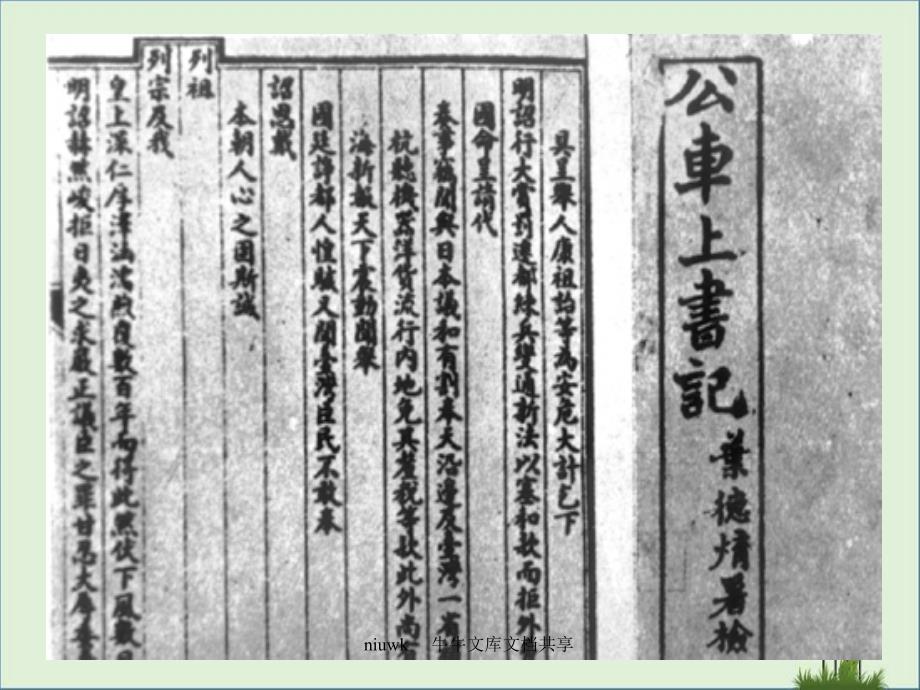 公車上書記
葉德煇署檢
具呈舉人康祖詒等為安危大計乞下
明詔行大賞罰遷都練兵變通新法以塞和款而拒外
國命呈請代
奏事竊聞與日本議和有割奉天沿邊及臺灣一省
杭聽機器洋貨流行內地免其釐稅等款此外尚有
海新報天下震動聞舉
國廷諍都人惶駭又聞臺灣臣民不敢奉
詔思戴
本朝人心之固斯誠
列祖
列宗及我
皇上深仁厚澤涵濡煦覆數百年而得此然伏下風數日
明詔赫然峻拒日夷之求嚴正議臣之罪甘忍大辱
niuwk 牛牛文库文档共享